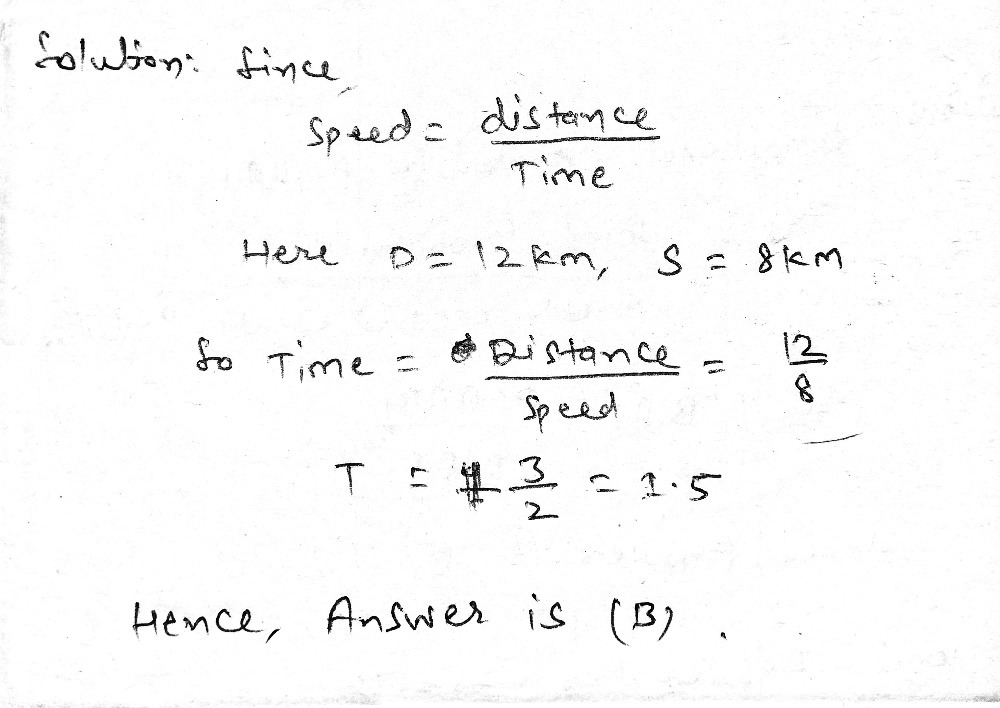 Solution: Since,
Speed = distance / Time
Here D = 12 km, S = 8 km
So Time = Distance / Speed = 12 / 8
T = 3 / 2 = 1.5
Hence, Answer is (B).